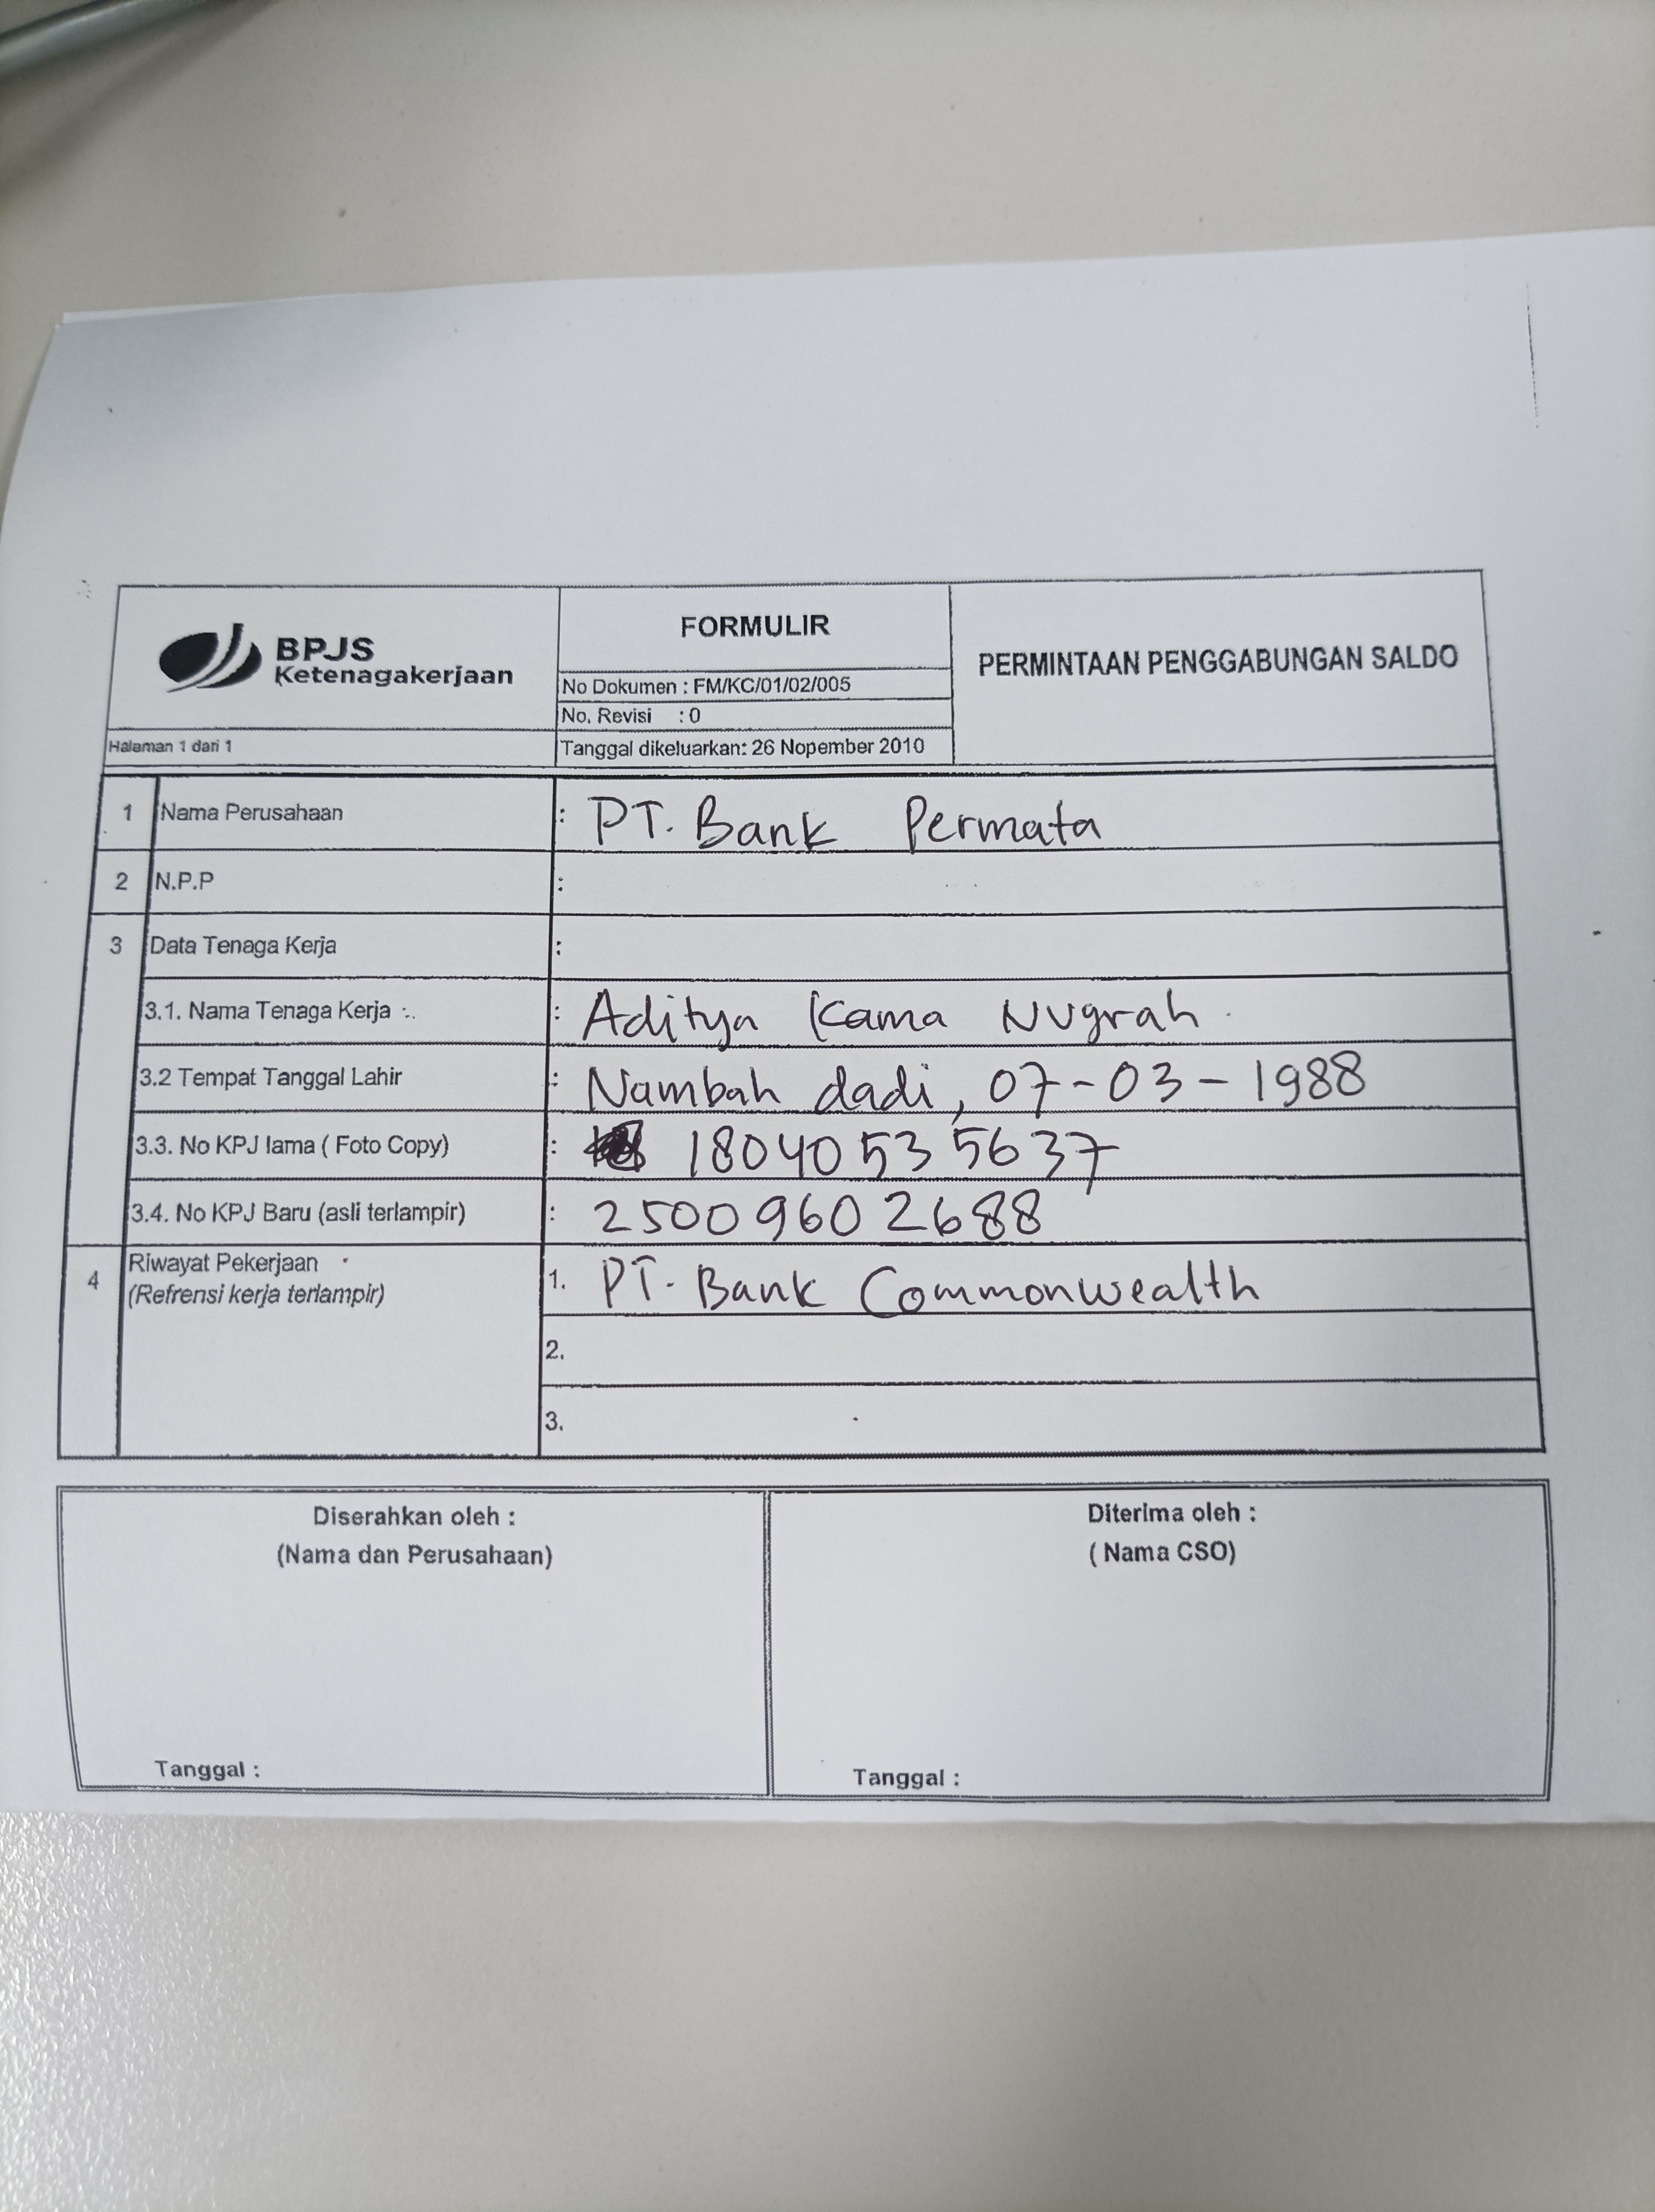 BPJS
Ketenagakerjaan
Halaman 1 dari 1
FORMULIR
No Dokumen : FM/KC/01/02/005
No. Revisi : 0
Tanggal dikeluarkan: 26 Nopember 2010
PERMINTAAN PENGGABUNGAN SALDO
1 Nama Perusahaan : PT. Bank Permata
2 N.P.P :
3 Data Tenaga Kerja :
3.1. Nama Tenaga Kerja : Aditya Kama Nugrah
3.2 Tempat Tanggal Lahir : Nambah dadi, 07-03-1988
3.3. No KPJ lama ( Foto Copy) : 18040535637
3.4. No KPJ Baru (asli terlampir) : 25009602688
4 Riwayat Pekerjaan
(Refrensi kerja terlampir)
1. PT. Bank Commonwealth
2.
3.
Diserahkan oleh :
(Nama dan Perusahaan)
Tanggal :
Diterima oleh :
( Nama CSO)
Tanggal :